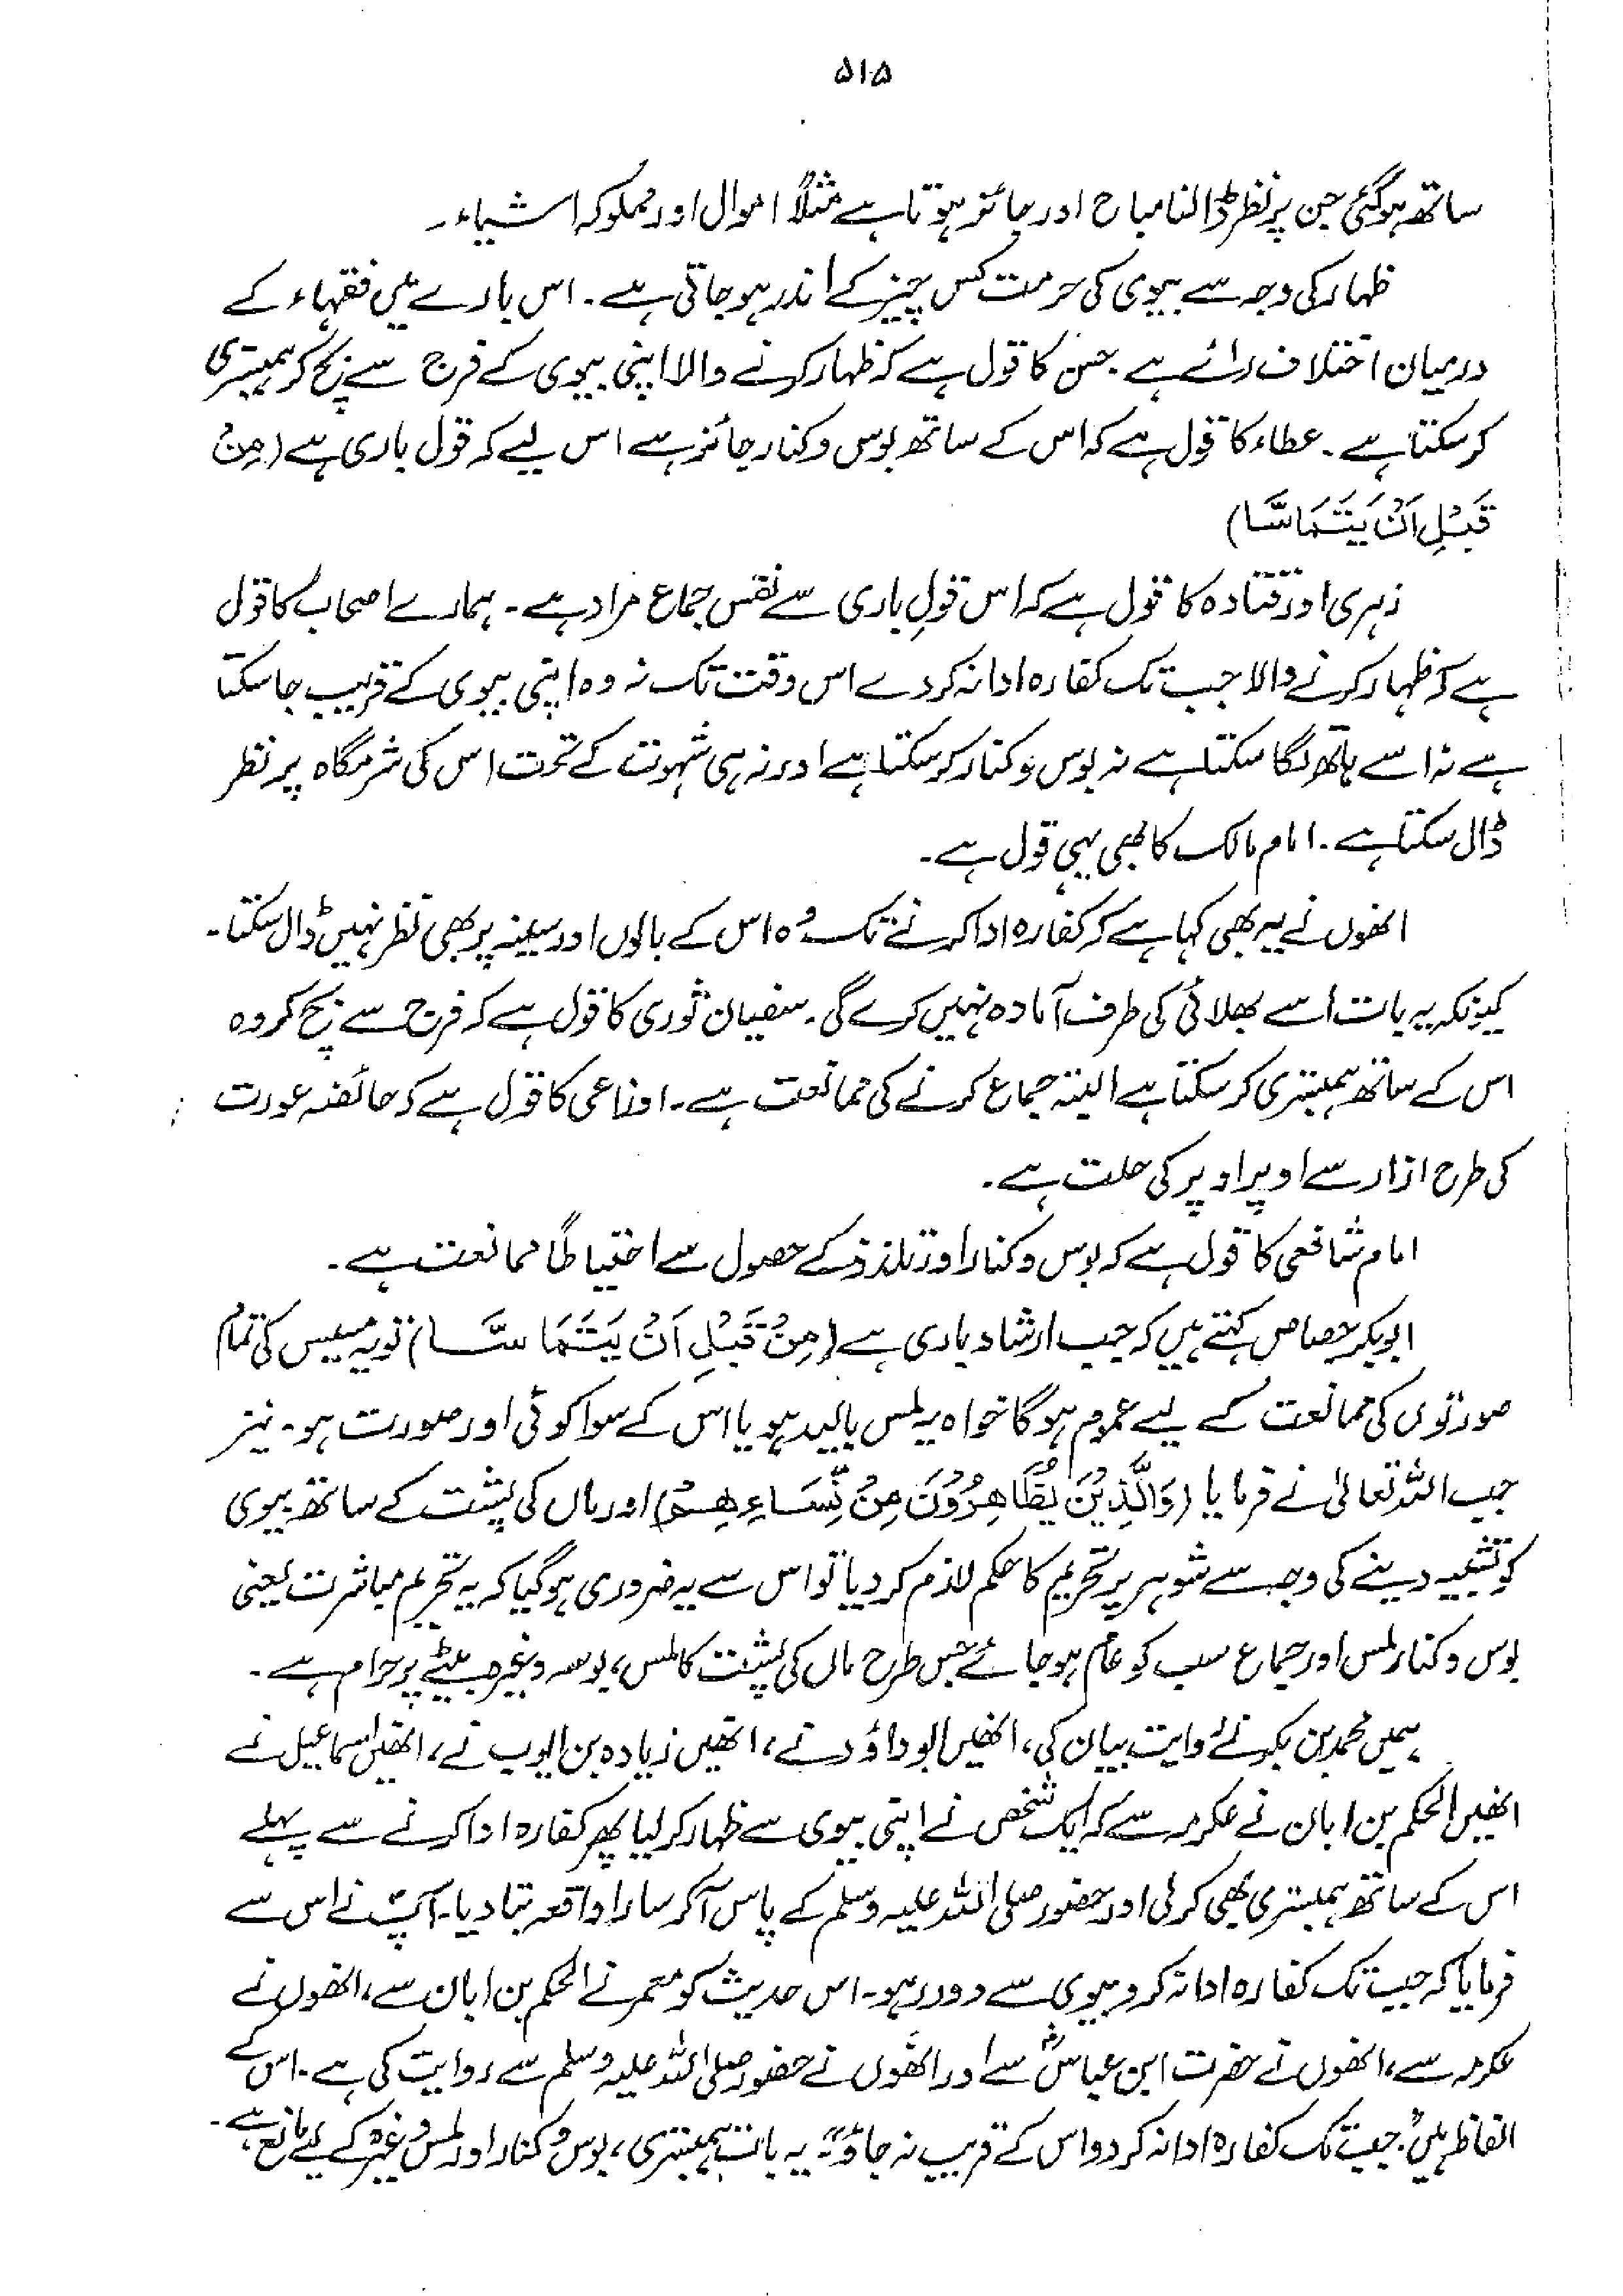 ۵۱۵
ساتھ ہوگئی جن پر نظر ڈالنا مباح اور جائز ہوتا ہے مثلاً اموال اور مملوکہ اشیاء۔
ظہار کی وجہ سے بیوی کی حرمت کس چیز کے اندر ہو جاتی ہے۔ اس بارے میں فقہاء کے
درمیان اختلاف رائے ہے۔ حسن کا قول ہے کہ ظہار کرنے والا اپنی بیوی کے فرج سے بچ کر ہمبستری
کر سکتا ہے۔ عطاء کا قول ہے کہ اس کے ساتھ بوس و کنار جائز ہے اس لیے کہ قول باری ہے (مِنْ
قَبْلِ اَنْ یَّتَمَاسَّا)
زہری اور قتادہ کا قول ہے کہ اس قولِ باری سے نفس جماع مراد ہے۔ ہمارے اصحاب کا قول
ہے کہ ظہار کرنے والا جب تک کفارہ ادا نہ کر دے اس وقت تک نہ وہ اپنی بیوی کے قریب جا سکتا
ہے نہ اسے ہاتھ لگا سکتا ہے نہ بوس و کنار کر سکتا ہے اور نہ ہی شہوت کے تحت اس کی شرمگاہ پر نظر
ڈال سکتا ہے۔ امام مالک کا بھی یہی قول ہے۔
انھوں نے یہ بھی کہا ہے کہ کفارہ ادا کرنے تک وہ اس کے بالوں اور سینہ پر بھی نظر نہیں ڈال سکتا۔
کیونکہ یہ بات اسے بھلائی کی طرف آمادہ نہیں کرے گی۔ سفیان ثوری کا قول ہے کہ فرج سے بچ کر وہ
اس کے ساتھ ہمبستری کر سکتا ہے البتہ جماع کرنے کی ممانعت ہے۔ اوزاعی کا قول ہے کہ حائضہ عورت
کی طرح ازار سے اوپر اوپر کی حلت ہے۔
امام شافعی کا قول ہے کہ بوس و کنار اور تلذذ کے حصول سے احتیاطاً ممانعت ہے۔
ابوبکر جصاص کہتے ہیں کہ جب ارشاد باری ہے (مِنْ قَبْلِ اَنْ یَّتَمَاسَّا) تو یہ مسیس کی تمام
صورتوں کی ممانعت کے لیے عموم ہوگا خواہ یہ لمس بالید ہو یا اس کے سوا کوئی اور صورت ہو۔ نیز
جب اللہ تعالیٰ نے فرمایا (وَالَّذِیْنَ یُظَاہِرُوْنَ مِنْ نِّسَاءِہِمْ) اور ماں کی پشت کے ساتھ بیوی
کو تشبیہ دینے کی وجہ سے شوہر پر تحریم کا حکم لازم کر دیا تو اس سے یہ ضروری ہوگیا کہ یہ تحریم مباشرت یعنی
بوس و کنار لمس اور جماع سب کو عام ہو جائے جس طرح ماں کی پشت کا لمس، بوسہ وغیرہ بیٹے پر حرام ہے۔
ہمیں محمد بن بکر نے روایت بیان کی، انھیں ابو داؤد نے، انھیں زیادہ بن ایوب نے، انھیں اسماعیل نے
انھیں الحکم بن ابان نے عکرمہ سے کہ ایک شخص نے اپنی بیوی سے ظہار کر لیا پھر کفارہ ادا کرنے سے پہلے
اس کے ساتھ ہمبستری بھی کر لی اور حضور صلی اللہ علیہ وسلم کے پاس آ کر سارا واقعہ بتا دیا۔ آپؐ نے اس سے
فرمایا کہ جب تک کفارہ ادا نہ کرو بیوی سے دور رہو۔ اس حدیث کو معمر نے الحکم بن ابان سے، انھوں نے
عکرمہ سے، انھوں نے حضرت ابن عباسؓ سے اور انھوں نے حضور صلی اللہ علیہ وسلم سے روایت کی ہے۔ اس کے
الفاظ ہیں: "جب تک کفارہ ادا نہ کر دو اس کے قریب نہ جاؤ"۔ یہ بات ہمبستری، بوس و کنار اور لمس وغیرہ کے لیے مانع ہے۔